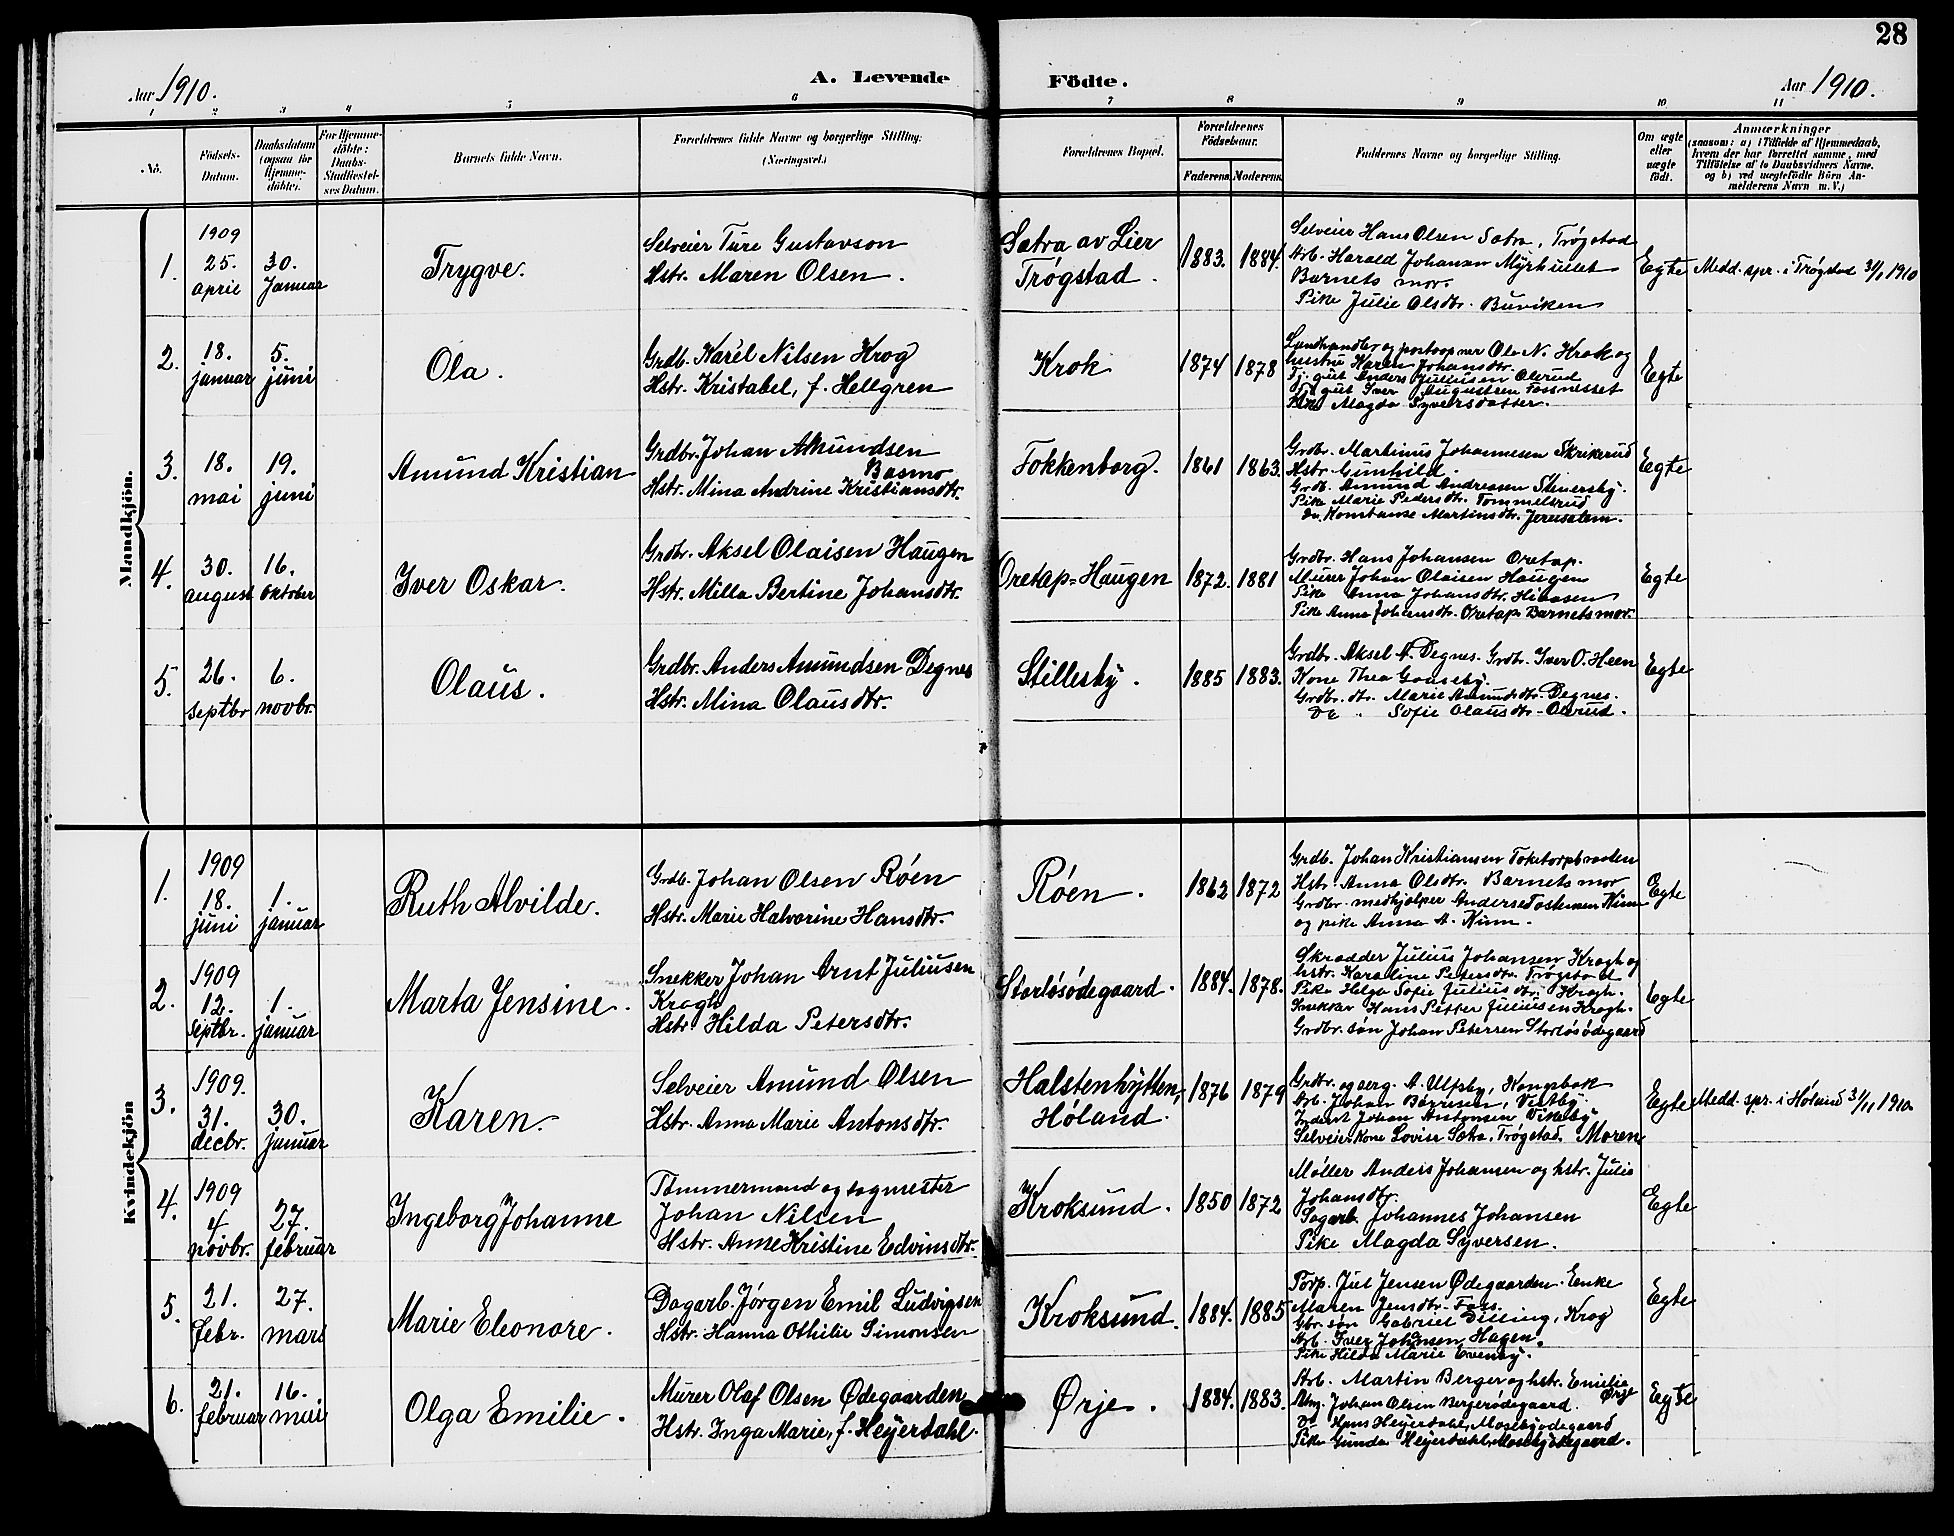 28
Aar 1910.
A. Levende Födte.
Aar 1910.
1 2 3 4 5 6 7 8 9 10 11
No.
Födsels-
Datum.
Daabsdatum
(ogsaa for
Hjemme-
döbte).
For Hjemme-
döbte:
Daabs-
Stadfæstel-
ses Datum.
Barnets fulde Navn.
Forældrenes fulde Navne og borgerlige Stilling.
(Næringsvei.)
Forældrenes Bopæl.
Forældrenes
Födselsaar.
Faderens. Moderens.
Faddernes Navne og borgerlige Stilling.
Om ægte
eller
uægte
födt.
Anmærkninger
(saasom: a) i Tilfælde af Hjemmedaab,
hvem der har forrettet samme, med
Tilföielse af to Daabsvidners Navne.
og b) ved uægtefödte Börn An-
melderens Navn m. V.)
Mandkjön.
1.
1909
25.
april
30.
Januar
Trygve.
Selveier Ture Gustavson
Hstr. Maren Olsen.
Sætra av Lier
Trøgstad.
1883. 1884.
Selveier Hans Olsen Sætra, Trøgstad
Arb. Harald Johansen Myrhullet
Barnets mor.
Pike Julie Olsdtr. Buviken
Egte
Medd. spr. i Trøgstad 31/1 1910
2.
18.
januar
5.
juni
Ola.
Grdb. Karél Nilsen Krog
Hstr. Kristabel, f. Hellgren
Krok
1874 1878
Landhandler og postaapner Ole N. Krok og
hustru Karen Johansdtr.
Tj. gut Anders Juliusen Olerud
Tj. gut Iver Augustsen Fossnesset
Pike Magda Syversdatter.
Egte
3.
18.
mai
19.
juni
Amund Kristian
Grdbr. Johan Amundsen
Basmo
Hstr. Mina Andrine Kristiansdtr.
Fokkenborg.
1861 1863.
Grdbr. Martinus Johannesen Skrikerud
Hstr. Gunhild.
Grdb. Amund Andreasen Stenersby.
Pike Marie Pedersdtr. Tommelsrud
Do. Konstanse Martinsdtr. Jerusalem.
Egte
4.
30.
august
16.
oktober
Iver Oskar.
Grdbr. Aksel Olaisen Haugen
Hstr. Milla Bertine Johansdtr.
Oretap-Haugen
1872. 1881
Grdbr. Hans Johansen Oretap.
Murer Johan Olaisen Haugen
Pike Anna Johansdtr.
Pike Anna Johansdtr. Oretap Barnets mor.
Egte
5.
26.
septbr
6.
novbr.
Olaus.
Grdbr. Anders Amundsen Degnes
Hstr. Mina Olausdtr.
Stillesby.
1885 1883.
Grdbr. Aksel A. Degnes. Grdbr. Iver O. Heen
Kone Thea
Grdbr. dtr. Marie Amundsdtr. Degnes.
Do " Sofie Olausdtr. Olerud.
Egte
Kvindekjön
1.
1909
18.
juni
1.
januar
Ruth Alvilde.
Grdb. Johan Olsen Røen
Hstr. Marie Halvorine Hansdtr.
Røen.
1862 1872
Grdb. Johan Kristiansen
Hstr. Anna Olsdtr. Barnets mor
Grdbr. medhjælper Anders Torstensen Kinn
og pike Anna A. Kinn.
Egte
2.
1909
12.
Septbr.
1.
januar
Marta Jensine.
Snekker Johan Arnt Juliusen
Krogh
Hstr Hilda Petersdtr.
Storløsødegaard.
1884. 1878.
Skrædder Julius Johansen Krogh og
hstr. Karoline Petersdtr. Trøgstad
Pike Helga Sofie Juliusdtr. Krogh.
Snekker Hans Petter Juliusen Krogh.
Grdbr. søn Johan Petersen Storløsødegaard
Egte
3.
1909.
31.
decbr.
30.
januar
Karen.
Selveier Amund Olsen
Hstr. Anna Marie Antonsdtr.
Halstenhytten,
Høland.
1876 1879
Grdbr. og A. Ulfsby, Kongsbok
Arb. Johan Børresen, Vestby.
Inderst Johan Antonsen Vikeby
Selveierkone Lovise Sætra, Trøgstad. Moren
Egte
Medd. spr. i Høland 31/1 1910.
4.
1909
4
novbr.
27.
februar
Ingeborg Johanne
Tømmermand og sagmester
Johan Nilsen
Hstr. Anne Kristine Edvinsdtr.
Kroksund.
1850 1872
Møller Anders Johansen og hstr. Julie
Johansdtr.
Sagarb. Johannes Johansen
Pike Magda Syversen.
Egte
5.
21.
febr.
27.
mars
Marie Eleonore.
Dagarb. Jørgen Emil Ludvigsen
Hstr. Hanna Othilie Simonsen
Kroksund.
1884. 1885
Forp. Juel Jensen Ødegaarden. Enke
Maren Jensdtr. Foss.
Gbr. søn Gabriel Dilling, Krog
Arb. Iver Johansen Hagen.
Pike Hilda Marie Evensby.
Egte
6.
21.
februar
16.
mai
Olga Emilie.
Murer Olaf Olsen Ødegaarden
Hstr. Inga Marie, f. Heyerdahl.
Ørje.
1884. 1883.
Arb. Martin Berger og hstr. Emilie
Ørje
Johan Olsen Bergerødegaard.
Do Hans Heyerdahl, Mosebyødegaard
Pike Gunda Heyerdahl, Mosebyødegaard.
Egte